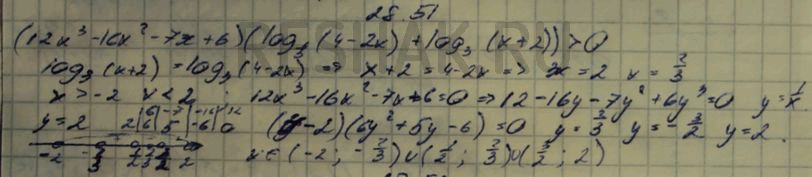 28.51
(12x³-16x²-7x+6)(log₃(4-2x)+log₃(x+2))>0
log₃(x+2)=log₃(4-2x) => x+2=4-2x => 3x=2 x=2/3
x>-2 x<2; 12x³-16x²-7x+6=0 => 12-16y-7y²+6y³=0 y=1/x
y=2 2|6|-7|-16|12 (y-2)(6y²+5y-6)=0 y=2/3 y=-3/2 y=2
x∈(-2; -2/3)∪(1/2; 2/3)∪(3/2; 2)